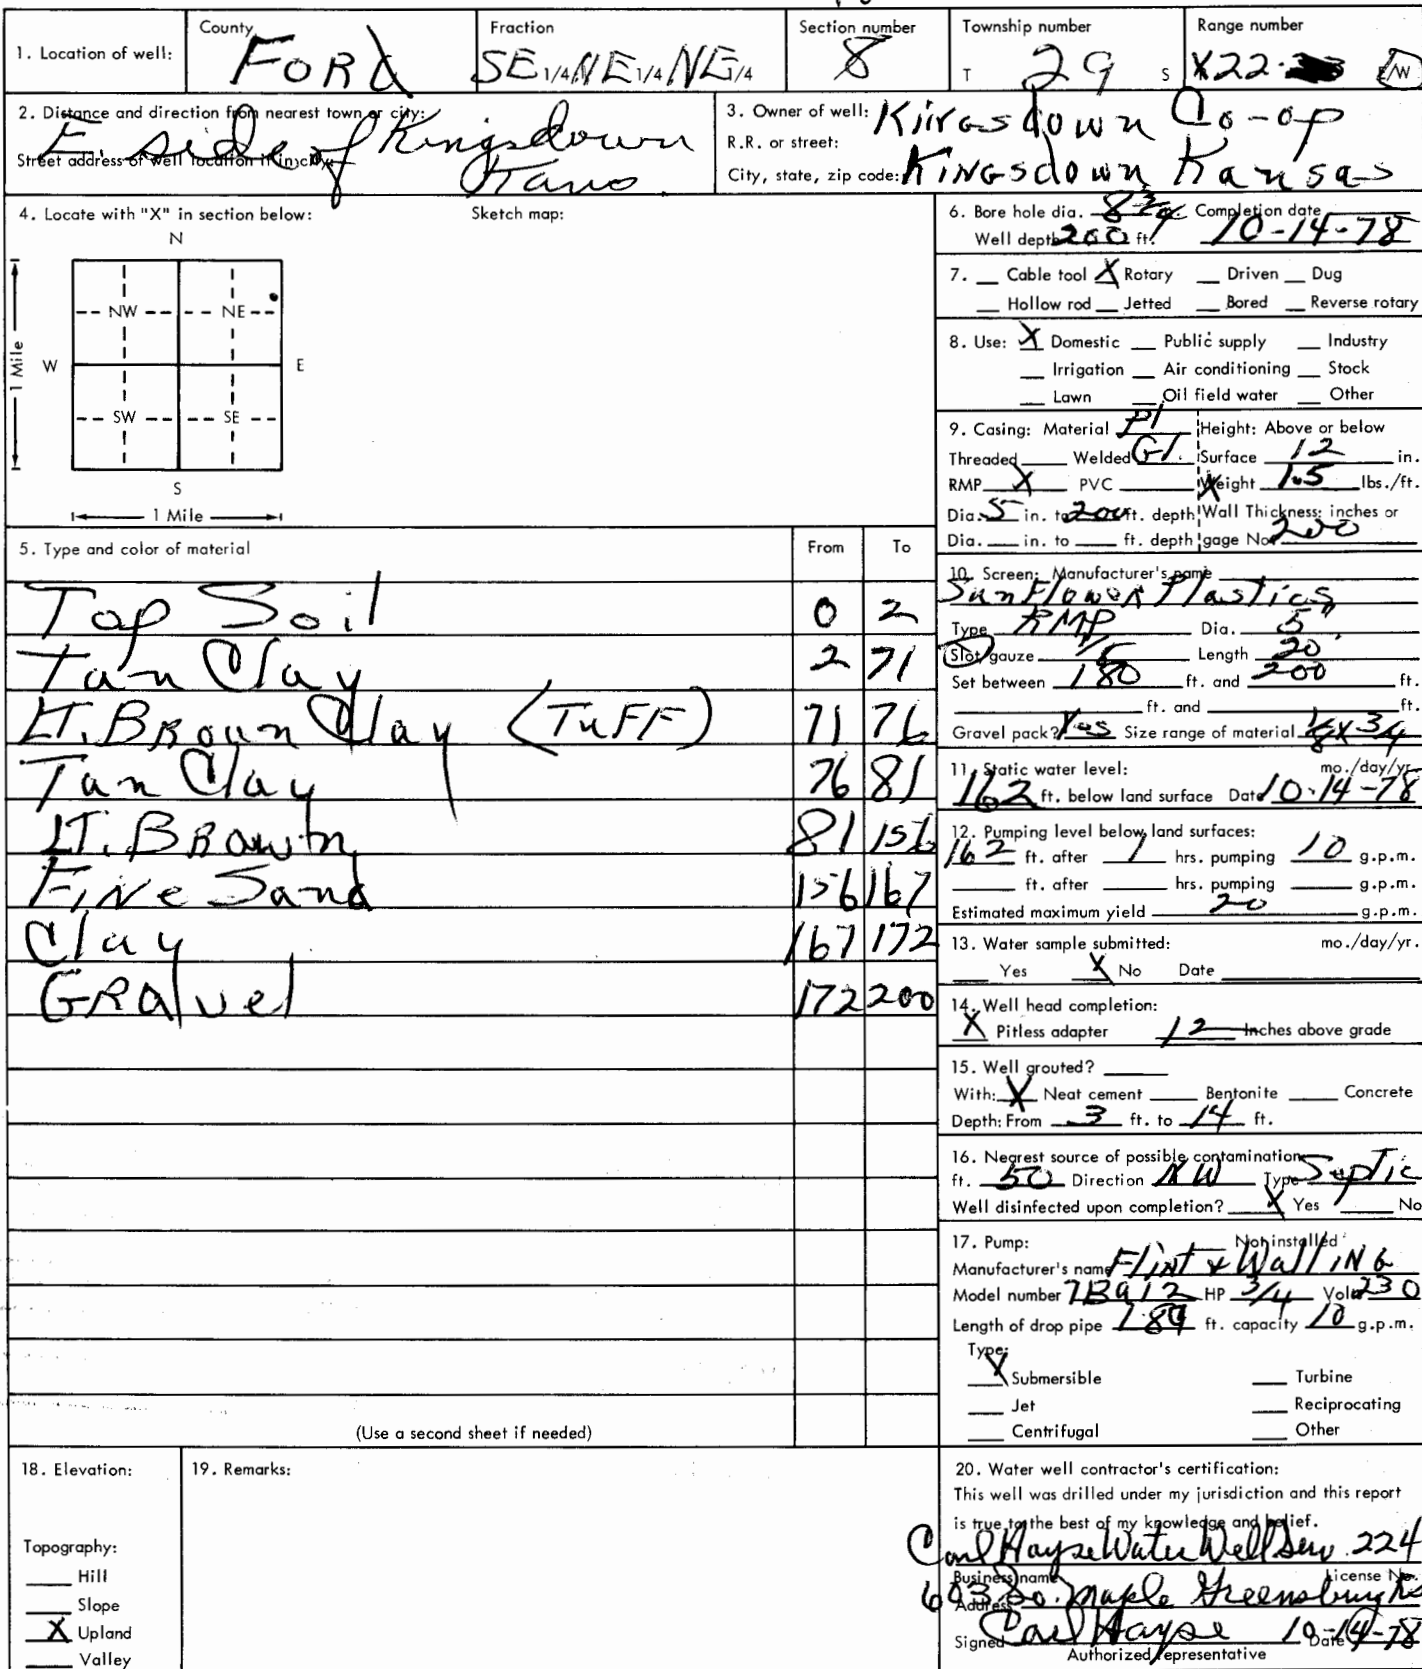 1. Location of well: County FORd Fraction SE 1/4 NE 1/4 NE 1/4 Section number 8 Township number T 29 S Range number X22 E/W
2. Distance and direction from nearest town or city: E. side of Kingsdown
Street address of well location if in city: Kans
3. Owner of well: Kingsdown Co-op
R.R. or street:
City, state, zip code: Kingsdown Kansas
4. Locate with "X" in section below: Sketch map:
N
NW NE
W E
1 Mile
SW SE
S
1 Mile
5. Type and color of material From To
Top Soil 0 2
Tan Clay 2 71
LT. BRown Clay (TuFF) 71 76
Tan Clay 76 81
LT. BRown 81 156
FiNe Sand 156 167
Clay 167 172
GRavel 172 200
(Use a second sheet if needed)
6. Bore hole dia. 8 3/4 Completion date
Well depth 200 ft. 10-14-78
7. Cable tool X Rotary Driven Dug
Hollow rod Jetted Bored Reverse rotary
8. Use: X Domestic Public supply Industry
Irrigation Air conditioning Stock
Lawn Oil field water Other
9. Casing: Material Pl Height: Above or below
Threaded Welded Gl. Surface 12 in.
RMP X PVC Weight 1.5 lbs./ft.
Dia. 5 in. to 200 ft. depth Wall Thickness: inches or
Dia. in. to ft. depth gage No. 200
10. Screen: Manufacturer's name
SunFlower Plastics
Type RMP Dia. 5"
Slot/gauze Length 20'
Set between 180 ft. and 200 ft.
ft. and ft.
Gravel pack? Yes Size range of material 1/8 x 3/4
11. Static water level: mo./day/yr.
162 ft. below land surface Date 10-14-78
12. Pumping level below land surfaces:
162 ft. after 1 hrs. pumping 10 g.p.m.
ft. after hrs. pumping g.p.m.
Estimated maximum yield 20 g.p.m.
13. Water sample submitted: mo./day/yr.
Yes X No Date
14. Well head completion:
X Pitless adapter 12 Inches above grade
15. Well grouted?
With: X Neat cement Bentonite Concrete
Depth: From 3 ft. to 14 ft.
16. Nearest source of possible contamination:
ft. 50 Direction NW Type Septic
Well disinfected upon completion? X Yes No
17. Pump: Not installed
Manufacturer's name Flint & WalliNG
Model number 7B912 HP 3/4 Volts 230
Length of drop pipe 189 ft. capacity 10 g.p.m.
Type:
X Submersible Turbine
Jet Reciprocating
Centrifugal Other
18. Elevation:
Topography:
Hill
Slope
X Upland
Valley
19. Remarks:
20. Water well contractor's certification:
This well was drilled under my jurisdiction and this report
is true to the best of my knowledge and belief.
Carl Hayse Water Well Serv. 224
Business name License No.
Address 603 So. Maple Greensburg Ks
Signed Carl Hayse Date 10-14-78
Authorized representative